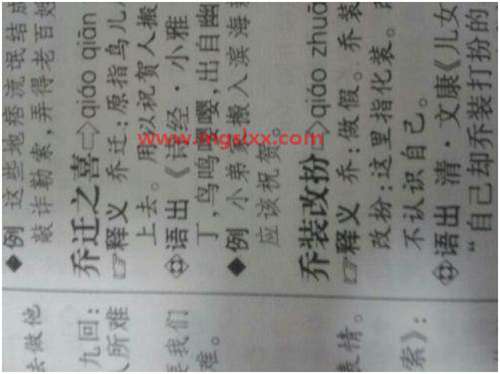 去做他
九回:
人所难
要我们
难。
表情。
索》:
◆例 这些地痞流氓结成
敲诈勒索,弄得老百姓
乔迁之喜⇨qiáo qiān
☞释义 乔迁:原指鸟儿
上去。用以祝贺人搬
语出《诗经·小雅
丁,鸟鸣嘤嘤,出自幽
◆例 小弟搬入滨海
应该祝贺。
乔装改扮⇨qiáo zhuā
☞释义 乔:做假。乔装
改扮:这里指化装。
不认识自己。
语出 清·文康《儿女
“自己却乔装打扮的
www.mgslxx.com